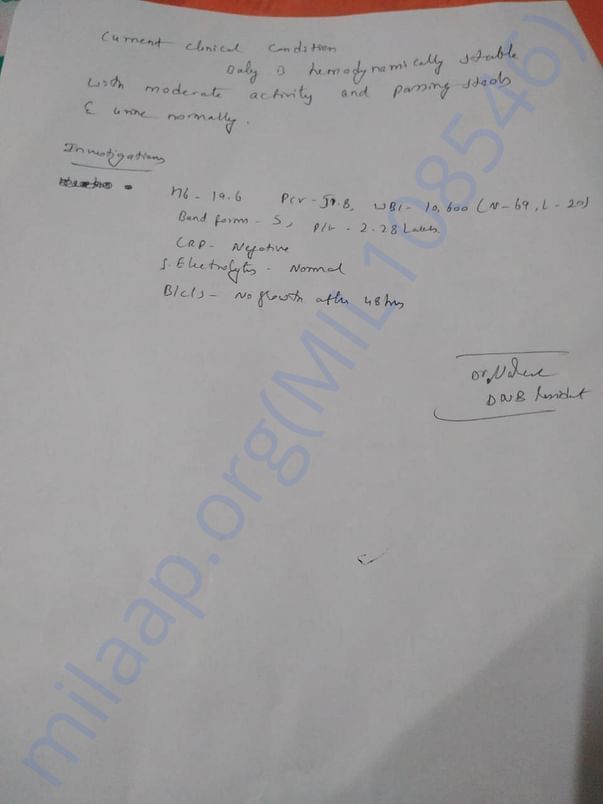 Current clinical condition
Baby is hemodynamically stable
with moderate activity and passing stools
& urine normally.
Investigations
Hb - 19.6 PCV - .8, WBC - 10,600 (N-69, L-20)
Band forms - 5, Plt - 2.28 Lakhs
CRP - Negative
S. Electrolytes - Normal
B/C/S - No growth after 48 hrs
Dr.
DNB Resident
milaap.org(MIL108546)